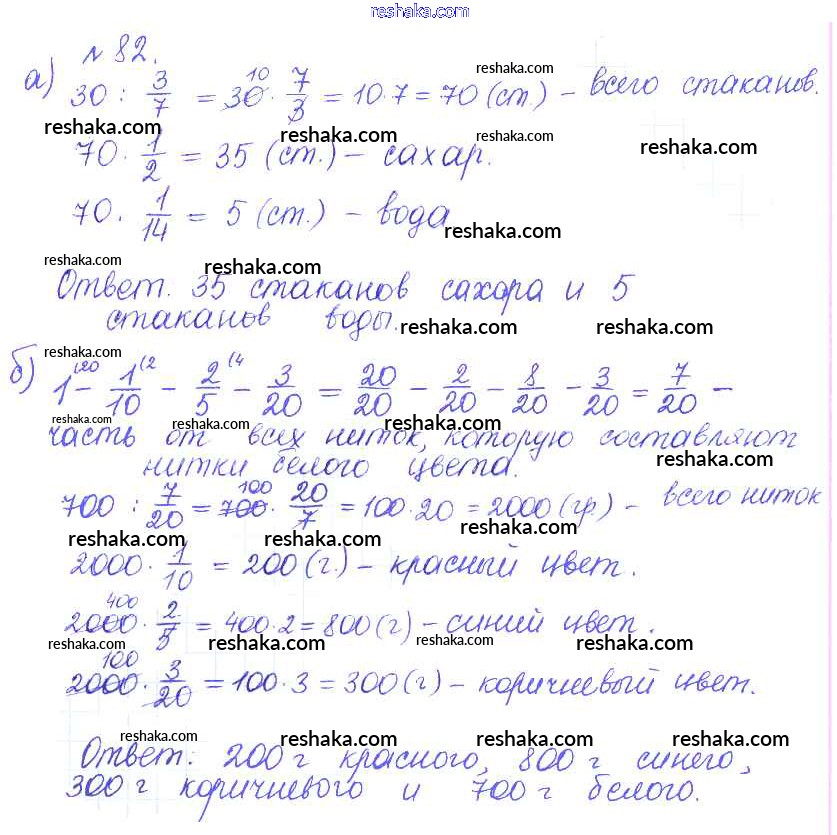 reshaka.com
№ 82.
а) 30 : 3/7 = 30 10 · 7/3 = 10·7 = 70 (ст.) – всего стаканов.
reshaka.com reshaka.com reshaka.com reshaka.com reshaka.com
70 · 1/2 = 35 (ст.) – сахар.
70 · 1/14 = 5 (ст.) – вода
reshaka.com
reshaka.com reshaka.com
Ответ. 35 стаканов сахора и 5
стаканов воды.
reshaka.com reshaka.com
reshaka.com
б) 1(20 – 1/10(2 – 2/5(4 – 3/20 = 20/20 – 2/20 – 8/20 – 3/20 = 7/20 –
reshaka.com reshaka.com reshaka.com
часть от всех ниток, которую составляют
нитки белого цвета.
reshaka.com
700 : 7/20 = 700 100 · 20/7 = 100·20 = 2000 (гр.) – всего ниток
reshaka.com reshaka.com reshaka.com reshaka.com
2000 · 1/10 = 200 (г.) – красный цвет.
2000 400 · 2/5 = 400·2 = 800 (г) – синий цвет.
reshaka.com reshaka.com reshaka.com reshaka.com
2000 100 · 3/20 = 100·3 = 300 (г) – коричневый цвет.
reshaka.com reshaka.com reshaka.com reshaka.com
Ответ: 200 г красного, 800 г синего,
300 г коричневого и 700 г белого.